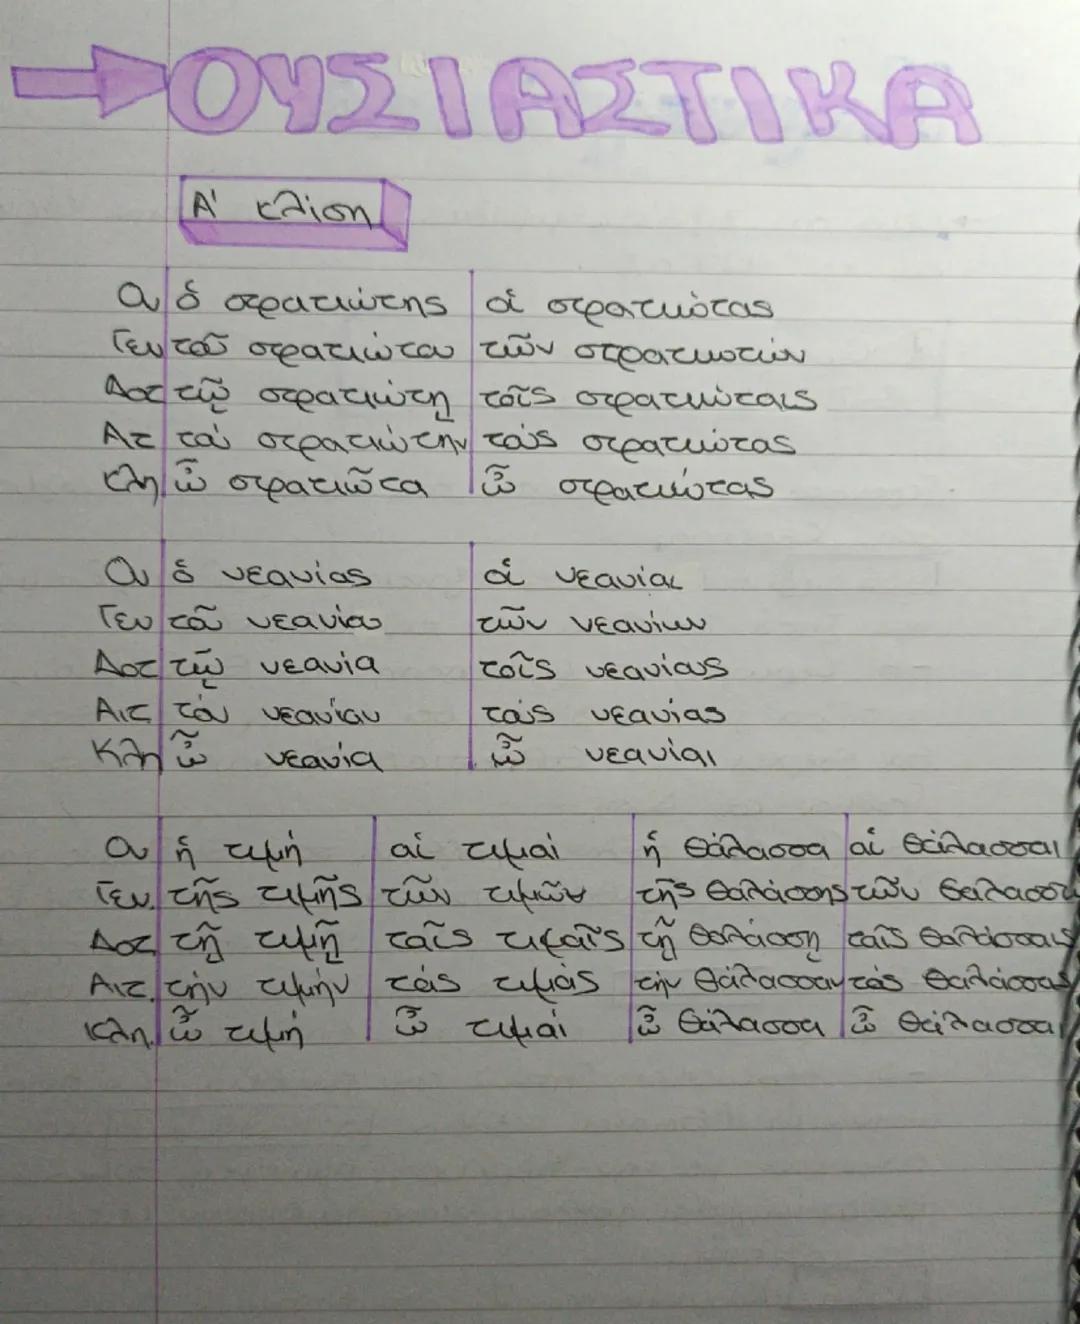 ΟΥΣΙΑΣΤΙΚΑ
Α' κλίση
Ον ὁ στρατιώτης οἱ στρατιώτας
Γεν τοῦ στρατιώτου τῶν στρατιωτών
Δοτ τῷ στρατιώτῃ τοῖς στρατιώταις
Ατ τον στρατιώτην τοὺς στρατιώτας
Κλη ὦ στρατιῶτα ὦ στρατιώτας
Ον ὁ νεανίας οἱ νεανίαι
Γεν τοῦ νεανίου τῶν νεανίων
Δοτ τῷ νεανία τοῖς νεανίαις
Αιτ τὸν νεανίαν τοὺς νεανίας
Κλη ὦ νεανία ὦ νεανίαι
Ον ἡ τιμή αἱ τιμαί ἡ θάλασσα αἱ θάλασσαι
Γεν. τῆς τιμῆς τῶν τιμῶν τῆς θαλάσσης τῶν
Δοτ τῇ τιμῇ ταῖς τιμαῖς τῇ θαλάσσῃ ταῖς θαλάσσαις
Αιτ. τήν τιμήν τάς τιμάς τήν θάλασσαν τάς θαλάσσας
Κλη. ὦ τιμή ὦ τιμαί ὦ θάλασσα ὦ θάλασσαι